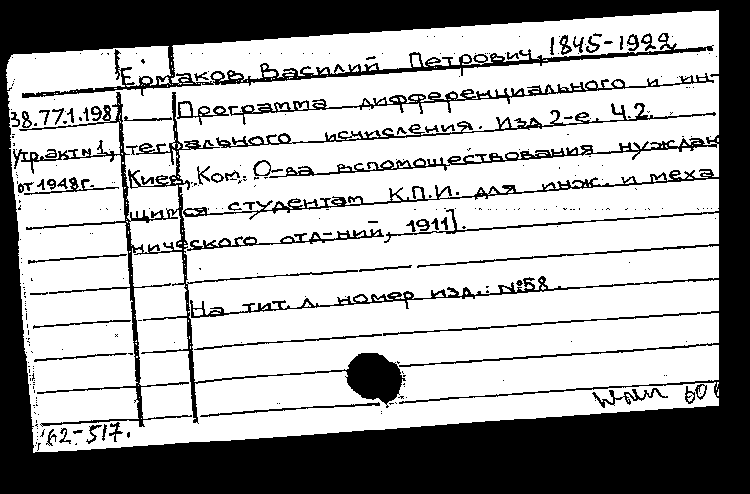 Ермаков, Василий Петрович, 1845-1922
38.77.1.1987. Программа дифференциального и ин-
Утр. акт №1, тегрального исчисления. Изд 2-е. Ч.2.
от 1948г. Киев, Ком. О-ва вспомоществования нуждаю
щимся студентам К.П.И. для инж. и меха
нического отд-ний, 1911].
На тит. л. номер изд.: №58.
62-517.